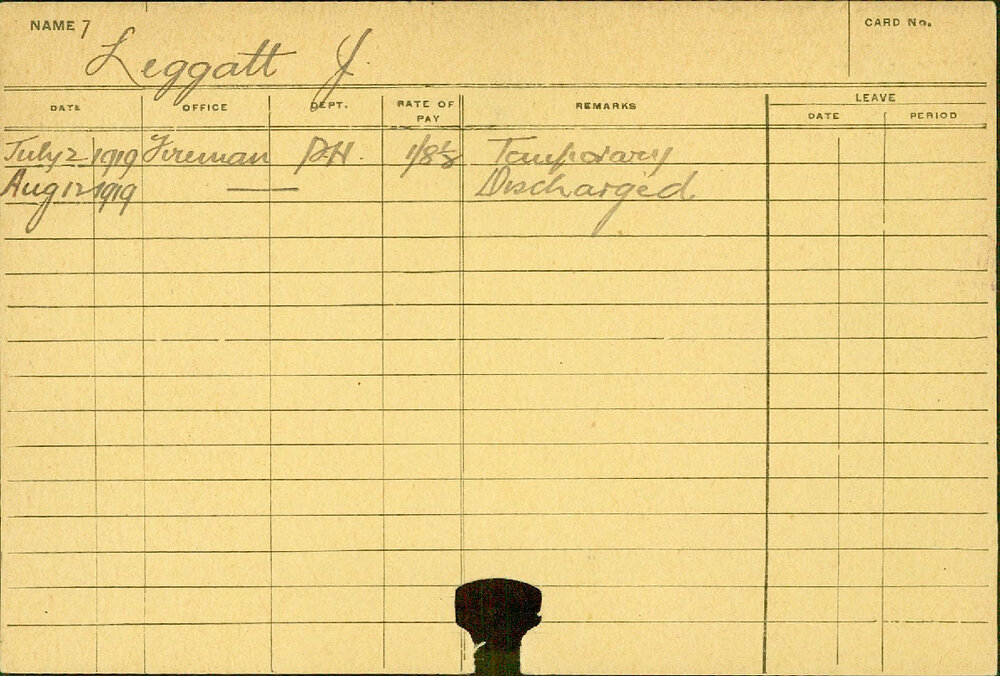 NAME 7 CARD No.
Leggatt J.
DATE OFFICE DEPT. RATE OF PAY REMARKS LEAVE
DATE PERIOD
July 2 1919 Fireman P.H. Temporary
Aug 12 1919 — Discharged